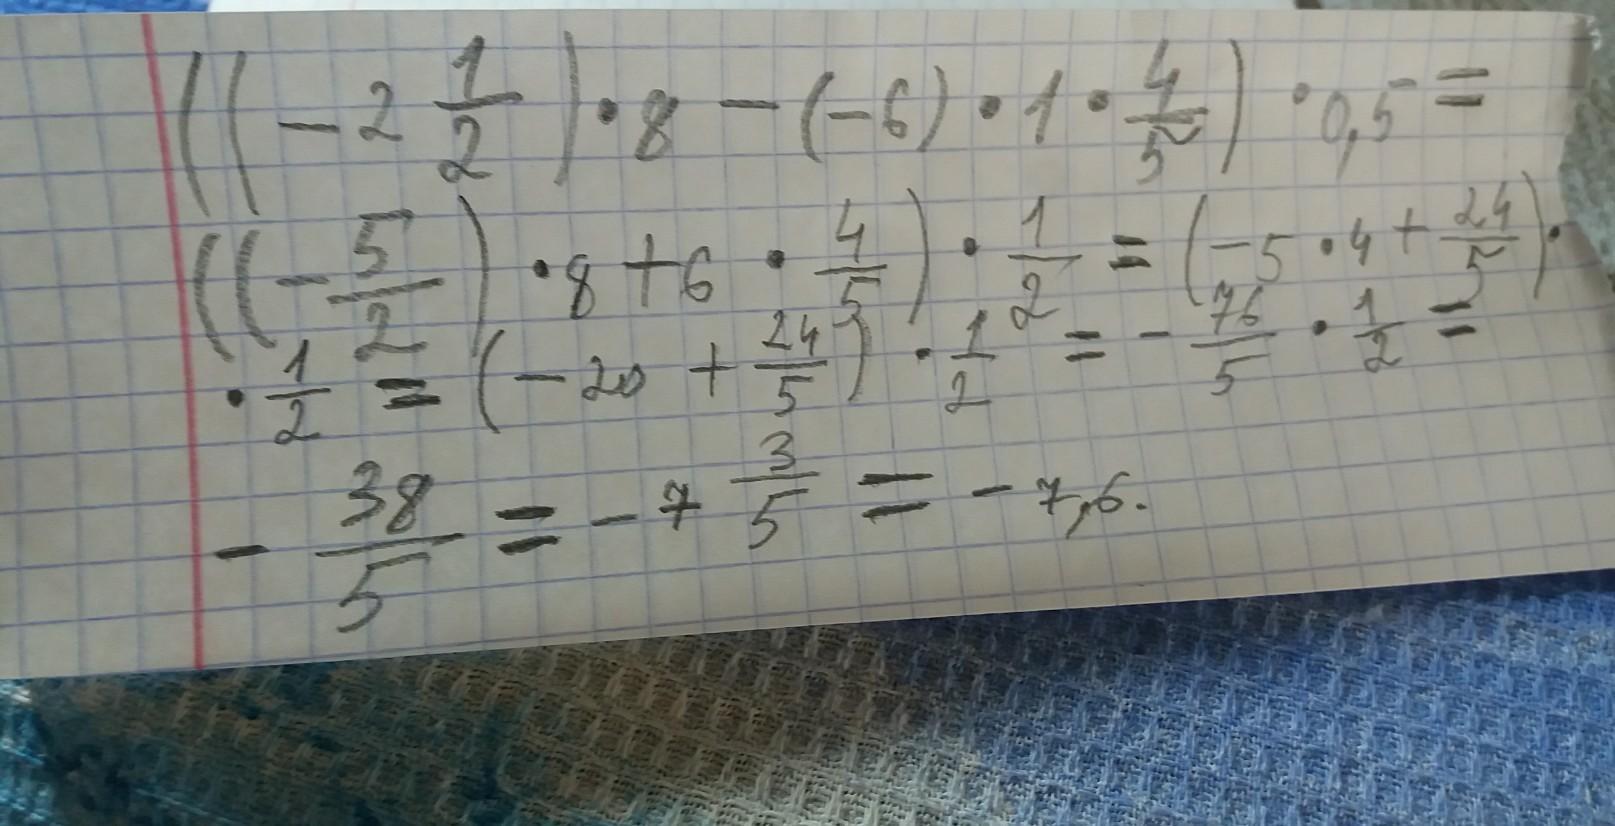 ((-2 1/2) · 8 - (-6) · 1 · 4/5) · 0,5 =
((-5/2) · 8 + 6 · 4/5) · 1/2 = (-5 · 4 + 24/5) ·
· 1/2 = (-20 + 24/5) · 1/2 = - 76/5 · 1/2 =
- 38/5 = - 7 3/5 = - 7,6.